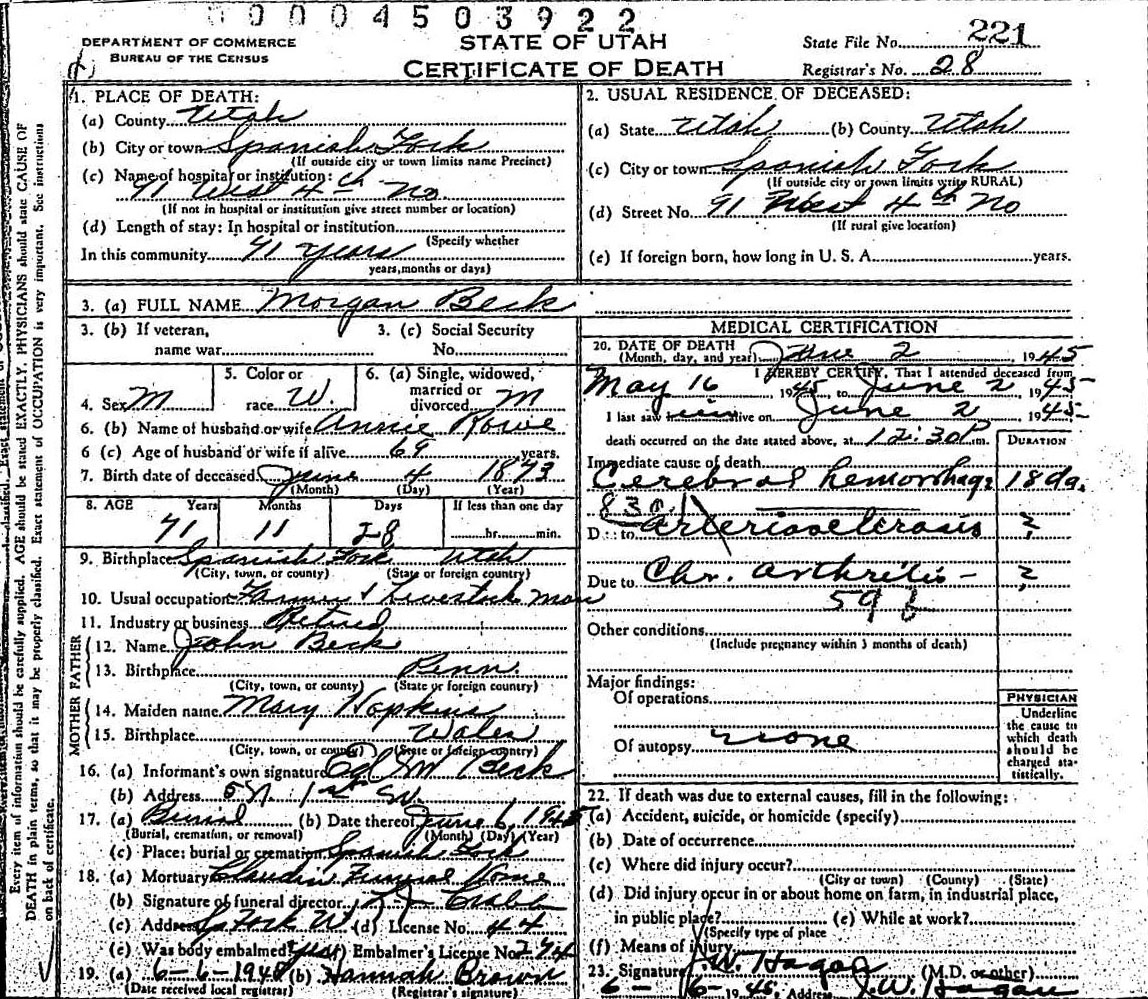 00004503922
DEPARTMENT OF COMMERCE
BUREAU OF THE CENSUS
STATE OF UTAH
CERTIFICATE OF DEATH
State File No. 221
Registrar's No. 28
1. PLACE OF DEATH:
(a) County Utah
(b) City or town Spanish Fork
(If outside city or town limits name Precinct)
(c) Name of hospital or institution:
91 West 4th No.
(If not in hospital or institution give street number or location)
(d) Length of stay: In hospital or institution
(Specify whether
In this community 71 years
years, months or days)
2. USUAL RESIDENCE OF DECEASED:
(a) State Utah (b) County Utah
(c) City or town Spanish Fork
(If outside city or town limits write RURAL)
(d) Street No. 91 West 4th No
(If rural give location)
(e) If foreign born, how long in U. S. A. years.
3. (a) FULL NAME Morgan Beck
3. (b) If veteran,
name war
3. (c) Social Security
No.
4. Sex M
5. Color or
race W.
6. (a) Single, widowed,
married or
divorced M
6. (b) Name of husband or wife Annie Rowe
6 (c) Age of husband or wife if alive 69 years.
7. Birth date of deceased June 4 1873
(Month) (Day) (Year)
8. AGE Years Months Days If less than one day
71 11 28 hr. min.
9. Birthplace Spanish Fork Utah
(City, town, or county) (State or foreign country)
10. Usual occupation Farmer & Livestock man
11. Industry or business Retired
FATHER
12. Name John Beck
13. Birthplace Penn.
(City, town, or county) (State or foreign country)
MOTHER
14. Maiden name Mary Hopkins
15. Birthplace Wales
(City, town, or county) (State or foreign country)
16. (a) Informant's own signature Beck
(b) Address 1st
17. (a) Burial (b) Date thereof June 6, 1945
(Burial, cremation, or removal) (Month) (Day) (Year)
(c) Place: burial or cremation Spanish Fork
18. (a) Mortuary Claudin Funeral Home
(b) Signature of funeral director
(c) Address Sp Fork (d) License No. 44
(e) Was body embalmed? yes Embalmer's License No. 274
19. (a) 6-6-1945 (b) Hannah Brown
(Date received local registrar) (Registrar's signature)
MEDICAL CERTIFICATION
20. DATE OF DEATH
(Month, day, and year) June 2, 1945
I HEREBY CERTIFY, That I attended deceased from
May 16 1945, to June 2 1945
I last saw him alive on June 2 1945
death occurred on the date stated above, at 12:30 P.m.
DURATION
Immediate cause of death
Cerebral hemorrhage 18 da.
83a
Due to arteriosclerosis ?
Due to Chr. arthritis - ?
59
Other conditions
(Include pregnancy within 3 months of death)
Major findings:
Of operations
Of autopsy none
PHYSICIAN
Underline
the cause to
which death
should be
charged sta-
tistically.
22. If death was due to external causes, fill in the following:
(a) Accident, suicide, or homicide (specify)
(b) Date of occurrence
(c) Where did injury occur?
(City or town) (County) (State)
(d) Did injury occur in or about home on farm, in industrial place,
in public place? (e) While at work?
(Specify type of place
(f) Means of injury
23. Signature J.W. Hagan (M.D. or other)
6-6-1945, Address J.W. Hagan
Every item of information should be carefully supplied. AGE should be stated EXACTLY. PHYSICIANS should state CAUSE OF
DEATH in plain terms, so that it may be properly classified. Exact statement of OCCUPATION is very important. See instructions
on back of certificate.